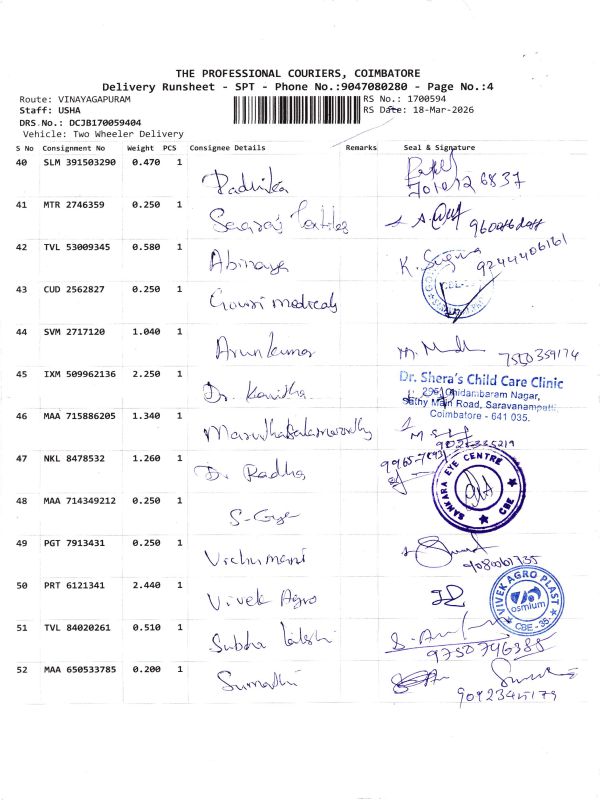 THE PROFESSIONAL COURIERS, COIMBATORE
Delivery Runsheet - SPT - Phone No.:9047080280 - Page No.:4
Route: VINAYAGAPURAM
RS No.: 1700594
Staff: USHA
RS Date: 18-Mar-2026
DRS No.: DCJB170059404
Vehicle: Two Wheeler Delivery
S No Consignment No Weight PCS Consignee Details Remarks Seal & Signature
40 SLM 391503290 0.470 1
Radhika
41 MTR 2746359 0.250 1
Textiles
42 TVL 53009345 0.580 1
Abinaya K. Suguna
9244406161
43 CUD 2562827 0.250 1
Gowri medicals
44 SVM 2717120 1.040 1
Arunkumar 7550359174
45 IXM 509962136 2.250 1
Dr. Kavitha
Dr. Shera's Child Care Clinic
295, Chidambaram Nagar,
Sathy Main Road, Saravanampatti,
Coimbatore - 641 035.
46 MAA 715886205 1.340 1
47 NKL 8478532 1.260 1
D. Radha
SANKARA EYE CENTRE
CBE
48 MAA 714349212 0.250 1
49 PGT 7913431 0.250 1
50 PRT 6121341 2.440 1
Vivek Agro
VIVEK AGRO PLAST
osmium
CBE - 35
51 TVL 84020261 0.510 1
Subha
9750746385
52 MAA 650533785 0.200 1
Sumathi
9092345179